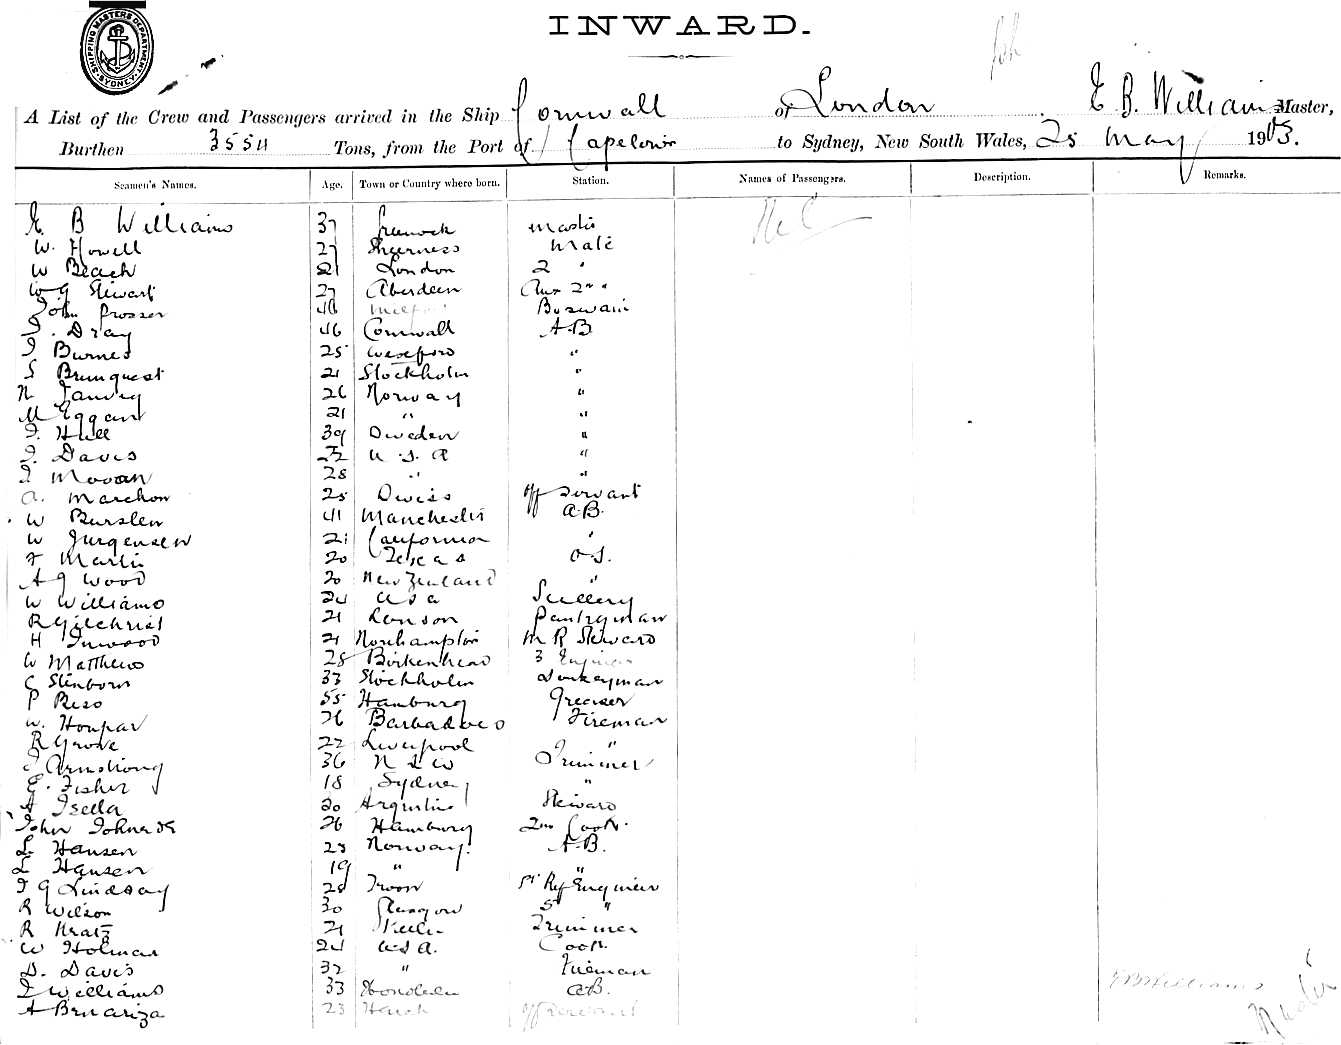 SHIPPING MASTERS DEPARTMENT SYDNEY
INWARD.
A List of the Crew and Passengers arrived in the Ship Cornwall of London E. B. Williams Master,
Burthen 3554 Tons, from the Port of Capetown to Sydney, New South Wales, 25 May 1903.
Seamen's Names. Age. Town or Country where born. Station. Names of Passengers. Description. Remarks.
E B Williams 37 Greenock Master
W. Howell 27 Sheerness Mate
W Beach 21 London 2 "
W G Stewart 27 Aberdeen Aux 2nd "
John Prosser 46 Boswain
Dray 46 Cornwall A.B
Burnes 25 Wexford "
S Brunquest 21 Stockholm "
N 26 Norway "
M Eggant 21 " "
Hill 39 Sweden "
Davis 22 U.S.A "
28 " "
A. Marchon 25 Swiss Off Servant
W Burslem 41 Manchester A.B.
W Jurgensen 21 California "
F Martin 20 Texas O.S.
A J Wood 20 New Zealand "
W Williams 24 USA Scullery
R Gilchrist 21 London Pantryman
H Inwood 21 Northampton M R Steward
W Matthews 28 Birkenhead 3 Engineer
C Stenborn 33 Stockholm Donkeyman
P 55 Hamburg Greaser
W. 26 Barbadoes Fireman
R Grove 22 Liverpool "
Armstrong 36 N S W Trimmer
E. Fisher 18 Sydney "
A Isella 20 Argentine Steward
John 26 Hamburg 2nd Cook
L Hansen 23 Norway. A.B.
L Hansen 19 " "
J G Lindsay 28 Troon 1st Ref Engineer
R Wilson 30 Glasgow 5 "
R Kratz 21 Trimmer
W Holman 24 U S A. Cook
D. Davis 32 " Fireman
Williams 33 Honolulu A.B.
E B Williams
Master
A Benariza 23 Off Servant